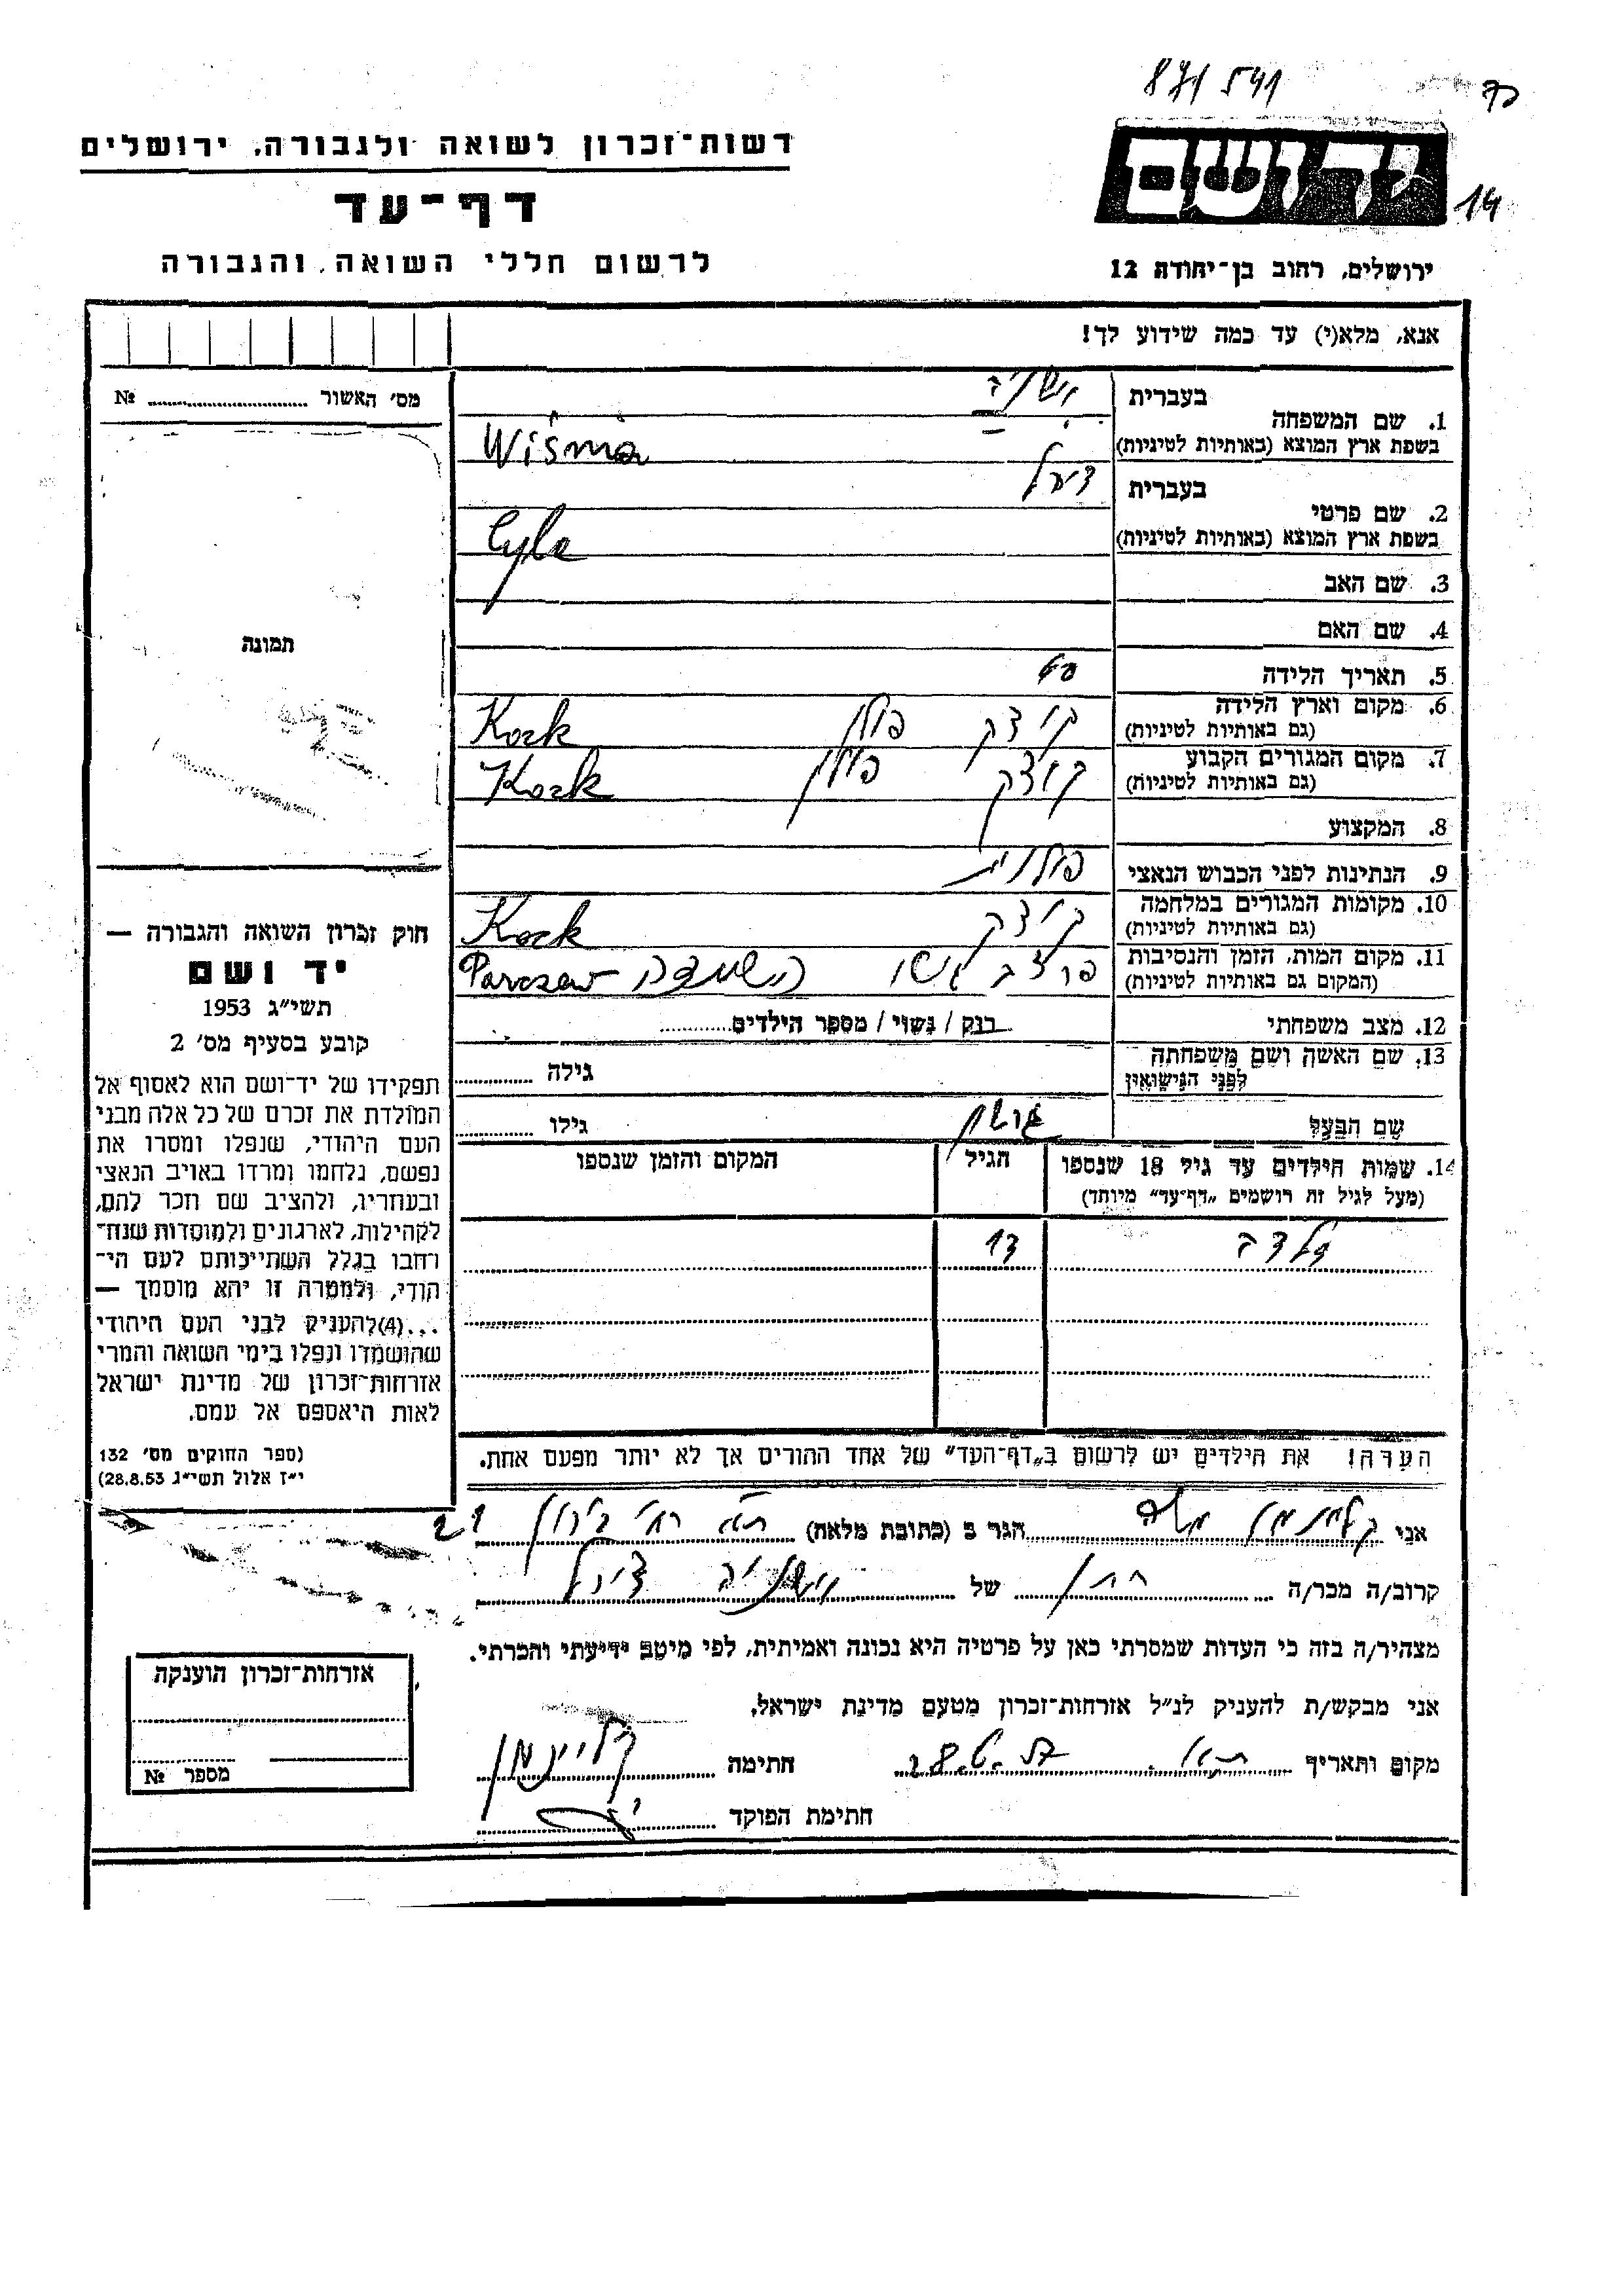 871 541
רשות־זכרון לשואה ולגבורה, ירושלים
יד ושם
14
דף־עד
לרשום חללי השואה והגבורה
ירושלים, רחוב בן־יהודה 12
אנא, מלא(י) עד כמה שידוע לך!
מס' האשור № ........
בעברית
1. שם המשפחה
בשפת ארץ המוצא (באותיות לטיניות) Wiśnia
בעברית
2. שם פרטי
בשפת ארץ המוצא (באותיות לטיניות) Cyla
3. שם האב
4. שם האם
תמונה
5. תאריך הלידה
6. מקום וארץ הלידה קוצק פולין Kozk
(גם באותיות לטיניות)
7. מקום המגורים הקבוע קוצק פולין Kozk
(גם באותיות לטיניות)
8. המקצוע
9. הנתינות לפני הכבוש הנאצי פולנית
10. מקומות המגורים במלחמה קוצק Kozk
(גם באותיות לטיניות)
11. מקום המות, הזמן והנסיבות השמדה Parczew
(המקום גם באותיות לטיניות)
12. מצב משפחתי רוק / נשוי / מספר הילדים........
13. שם האשה ושם משפחתה
לפני הנישואין גילה ........
שם הבעל גילו ........
14. שמות הילדים עד גיל 18 שנספו הגיל המקום והזמן שנספו
(מעל לגיל זה רושמים „דף־עד” מיוחד)
13
הערה! את הילדים יש לרשום ב„דף־העד” של אחד ההורים אך לא יותר מפעם אחת.
חוק זכרון השואה והגבורה —
יד ושם
תשי״ג 1953
קובע בסעיף מס' 2
תפקידו של יד־ושם הוא לאסוף אל
המולדת את זכרם של כל אלה מבני
העם היהודי, שנפלו ומסרו את
נפשם, נלחמו ומרדו באויב הנאצי
ובעוזריו, ולהציב שם וזכר להם,
לקהילות, לארגונים ולמוסדות שנח־
רבו בגלל השתייכותם לעם הי־
הודי, ולמטרה זו יהא מוסמך —
...(4)להעניק לבני העם היהודי
שהושמדו ונפלו בימי השואה והמרי
אזרחות־זכרון של מדינת ישראל
לאות היאספם אל עמם.
(ספר החוקים מס' 132
י״ז אלול תשי״ג 28.8.53)
אני קליינמן משה הגר ב (כתובת מלאה) ת״א
קרוב/ה מכר/ה של צירל
מצהיר/ה בזה כי העדות שמסרתי כאן על פרטיה היא נכונה ואמיתית, לפי מיטב ידיעתי והכרתי.
אני מבקש/ת להעניק לנ״ל אזרחות־זכרון מטעם מדינת ישראל.
מקום ותאריך ת״א חתימה קליינמן
חתימת הפוקד
אזרחות־זכרון הוענקה
מספר №